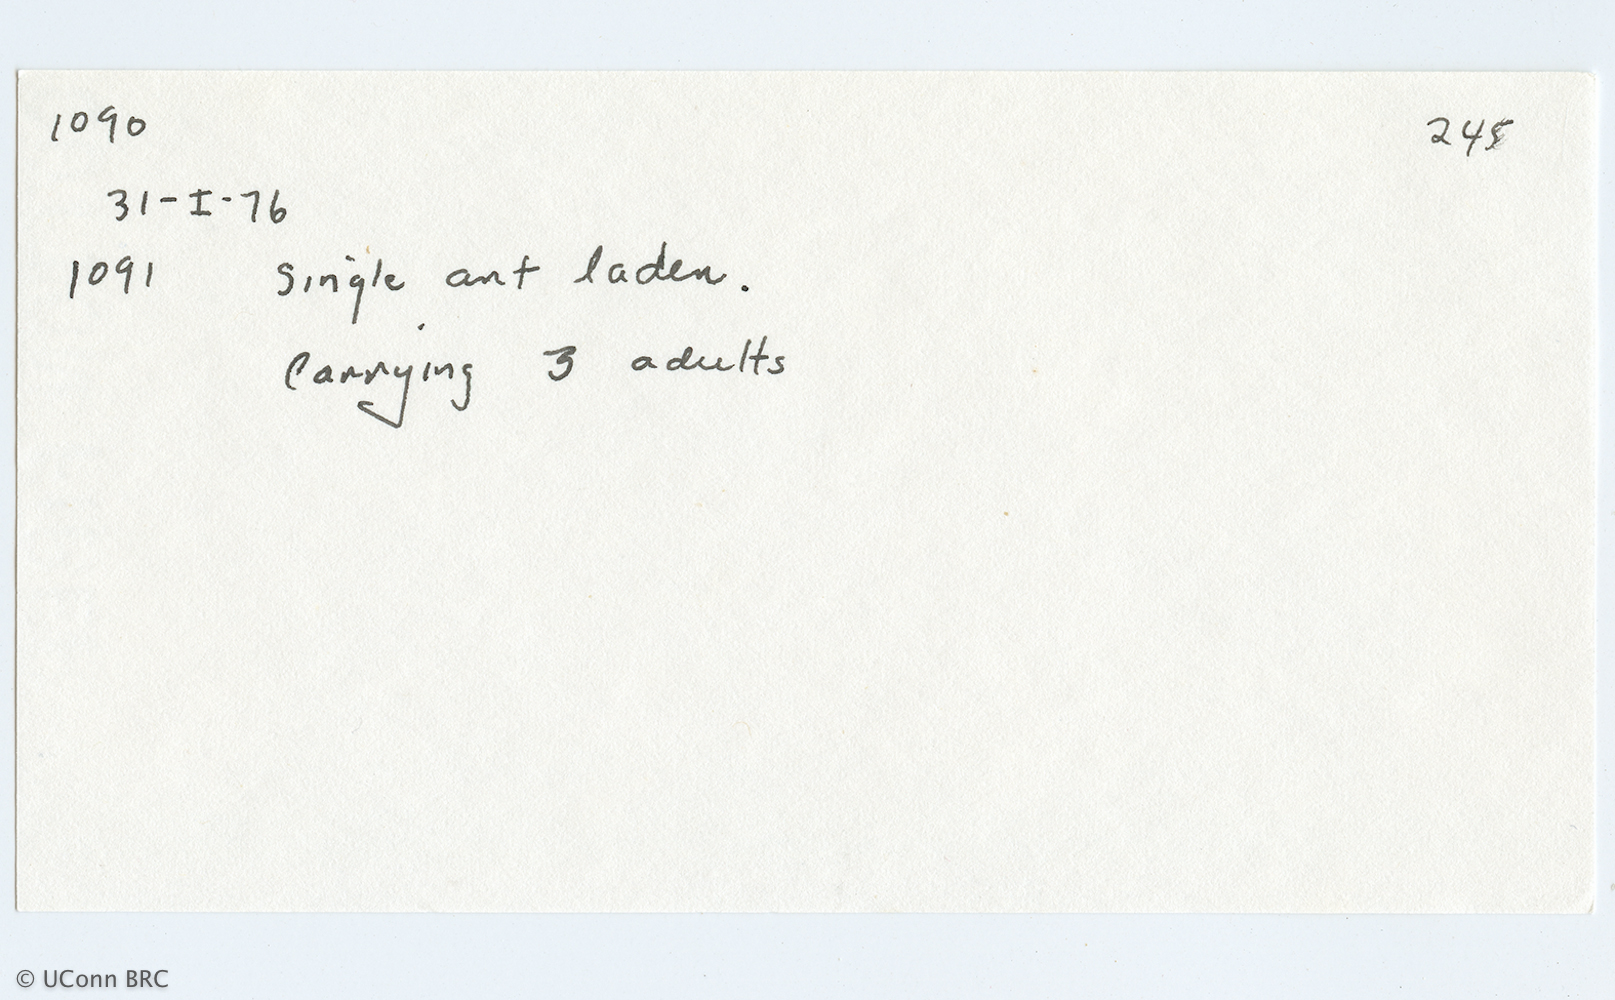 1090
245
31-I-76
1091 Single ant laden.
Carrying 3 adults
© UConn BRC